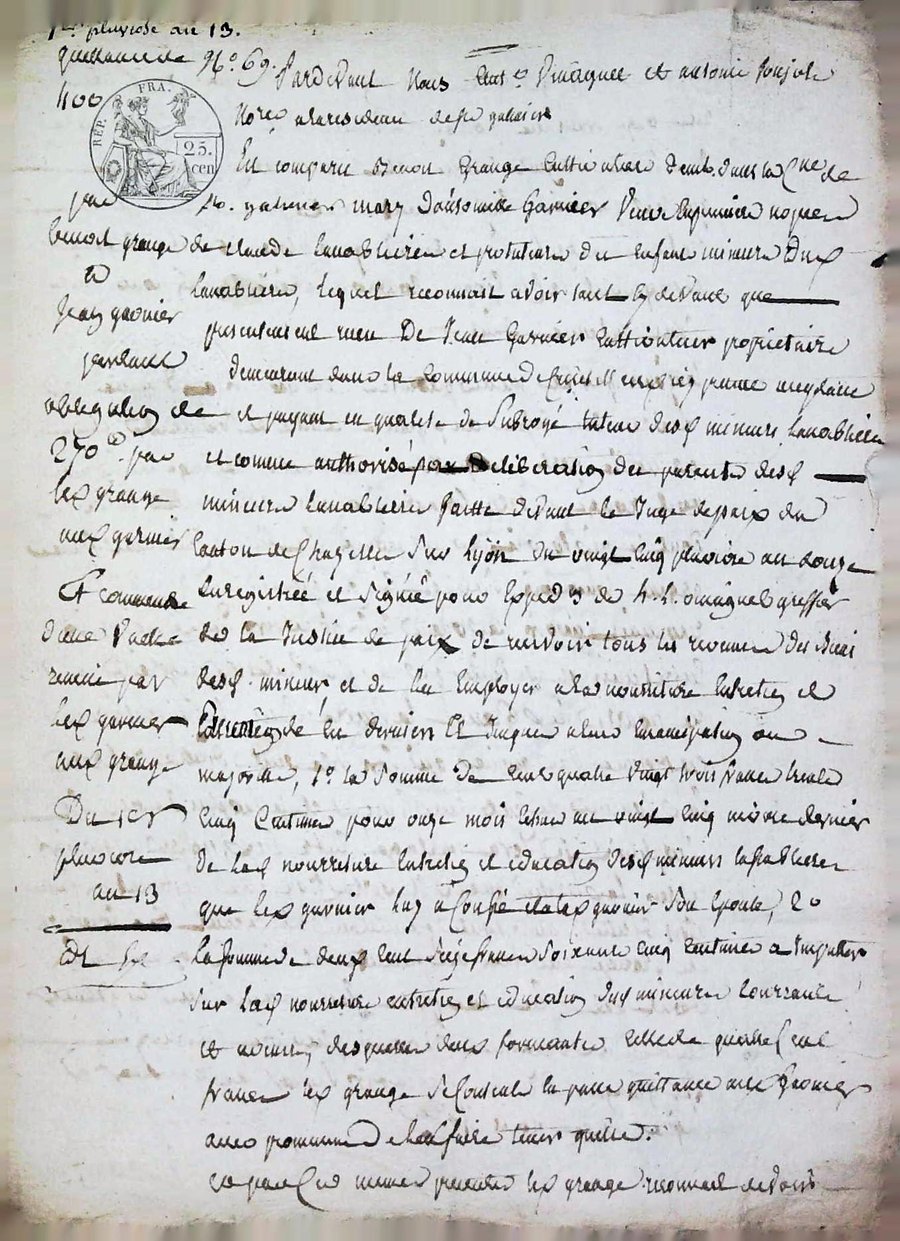 1er pluviose an 13.
quittance de
400
N°. 69.
REP. FRA.
25.
cen
par
benoit grange
a
Jean garnier
portant
obligation de
270 par
led grange
aud garnier
Et commande
d'une Vache
remise par
led garnier
aud grange
Du 1er
pluviose
an 13
Pardevant Nous et antoine
Nores a la residence de St galmier
Est comparu Benoit Grange Cultivateur demt. dans la Cne de
St. galmier mary d'antoinette Garnier Veuve en premiere nopce
de claude lanabliere et protuteur des enfants mineurs dud
lanabliere, lequel reconnait avoir tant cy devant que
presentement recu De Jean Garnier cultivateur propriétaire
demeurant dans la Commune de
et payant en qualité de Subrogé tuteur desd mineurs lanabliere
et comme authorisé par Deliberation des parents desd
mineurs lanabliere faitte devant le Juge de paix du
Canton de Chazelle Sur Lyon du vingt cinq pluviose an douze
Enregistrée et Signée pour Exped greffier
de la Justice de paix de recevoir tous les revenus des biens
desd. mineurs et de les Employer a la nourriture Entretien et
de ces derniers Et Jusques a leur Emancipation ou
majorité, 1° la Somme de Cent quatre Vingt trois francs trente
Cinq Centimes pour onze mois Echus au vingt Cinq nivose dernier
de lad nourriture Entretien et education desd mineurs lanabliere
que led garnier luy a Confié et a lad garnier Son Epouse, 2°
la Somme de deux Cent Seize francs Soixante Cinq Centimes a Imputter
Sur lad nourriture entretien et education desd mineurs Courrante
et a venir, desquelles deux formant Celle de quatre Cent
francs led grange Consent quittance aud Garnier
avec promesse de l'en faire tenir quitte.
Et par Ces memes presentes led grange reconnait devoir